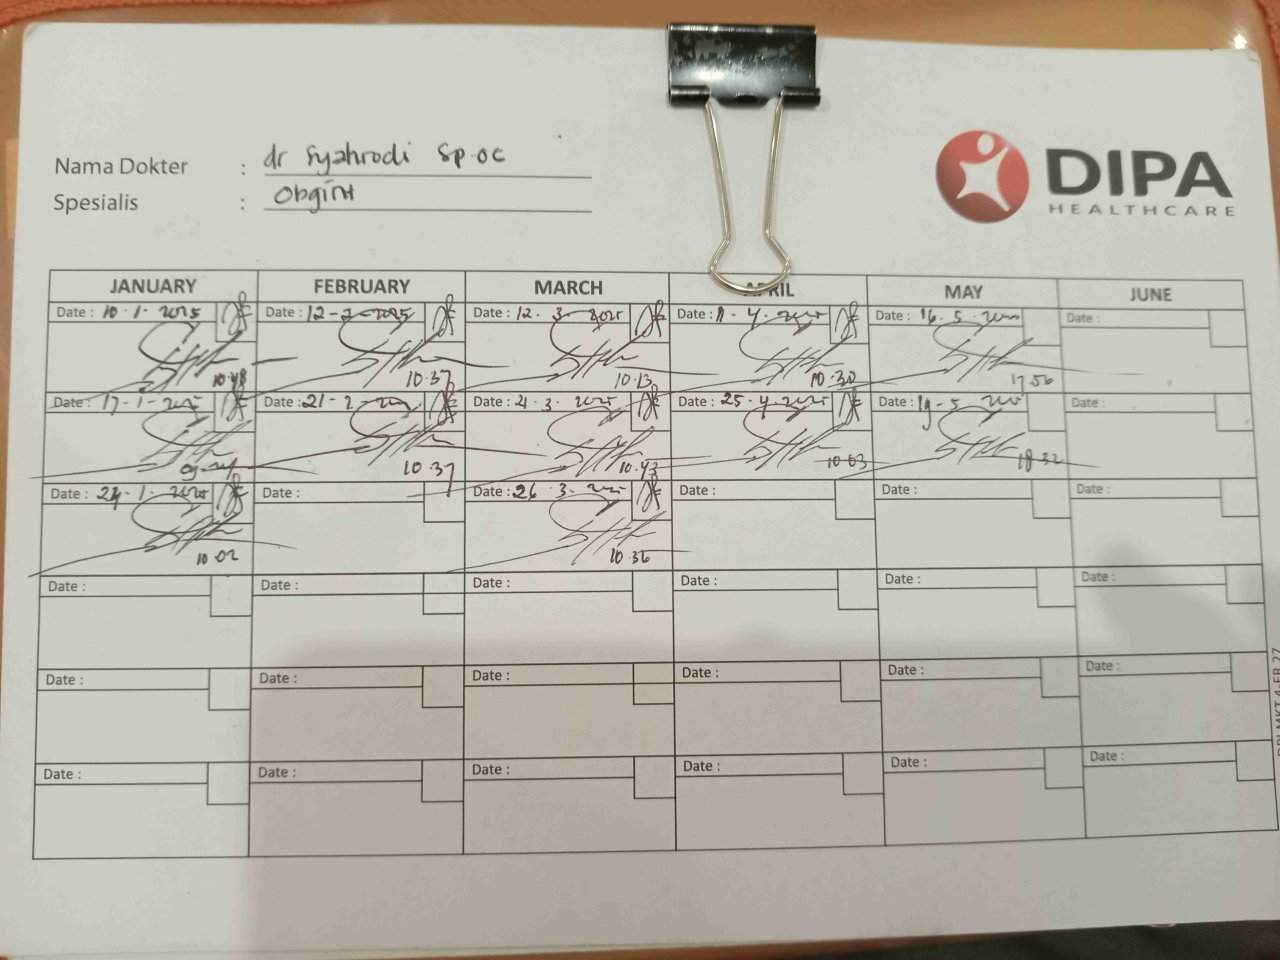 Nama Dokter : dr Syahrodi Sp.OG
Spesialis : Obgin
DIPA
HEALTHCARE
JANUARY FEBRUARY MARCH APRIL MAY JUNE
Date : 10-1-2025 Date : 12-2-2025 Date : 12-3-2025 Date : 11-4-2025 Date : 16-5-2025 Date :
10.48 10.37 10.13 10.30 17.56
Date : 17-1-2025 Date : 21-2-2025 Date : 21-3-2025 Date : 25-4-2025 Date : 19-5-2025 Date :
10.37 10.43 10.03 18.32
Date : 24-1-2025 Date : Date : 26-3-2025 Date : Date : Date :
10.02 10.36
Date : Date : Date : Date : Date : Date :
Date : Date : Date : Date : Date : Date :
Date : Date : Date : Date : Date : Date :